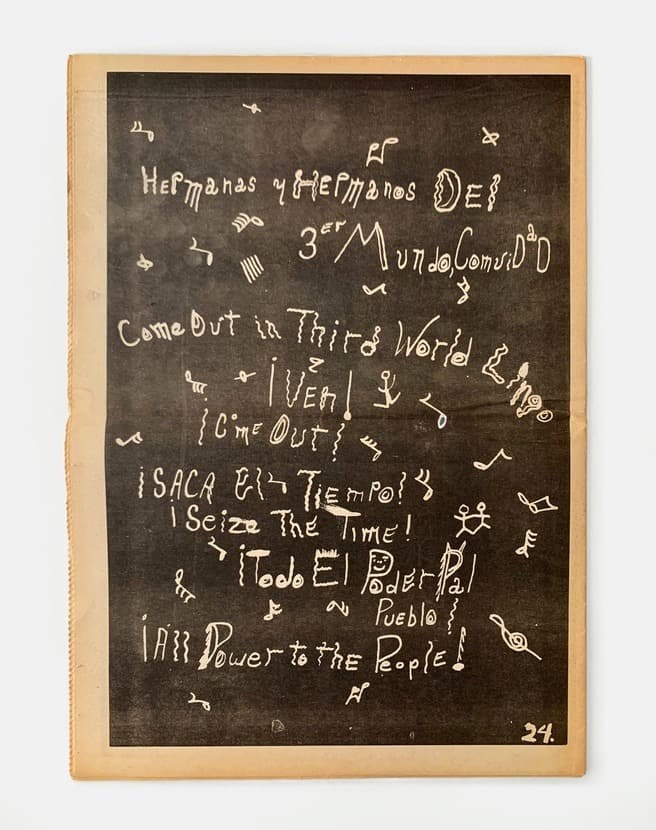 HERmanas y HERmanos DEl
3er Mundo, ComuiDaD
Come Out in Third World Lingo
¡VEN!
¡Come Out!
¡SACA El TiEmpo!
¡Seize The Time!
¡Todo El PodEr Pal
Pueblo!
¡All Power to thE People!
24.